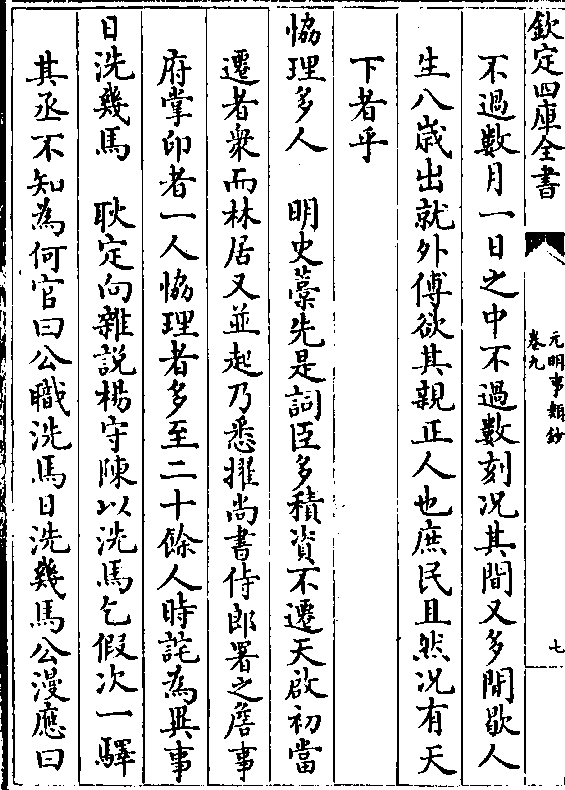 欽定四庫全書
元明事類鈔
卷九
七
不過數月一日之中不過數刻况其間又多閒歇人
生八歲出就外傅欲其親正人也庶民且然况有天
下者乎
協理多人　明史藁先是詞臣多積資不遷天啟初當
遷者衆而林居又並起乃悉擢尚書侍郎署之詹事
府掌印者一人協理者多至二十餘人時詫為異事
日洗幾馬　耿定向雜說楊守陳以洗馬乞假次一驛
其丞不知為何官曰公職洗馬日洗幾馬公漫應曰